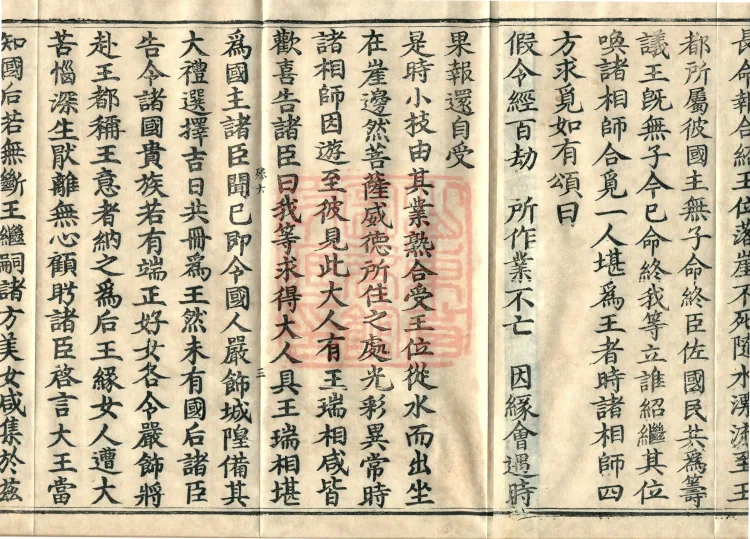 長命報合紹王位落崖不死隨水漂流至王
都所屬彼國主無子命終臣佐國民共爲籌
議王旣無子今已命終我等立誰紹繼其位
喚諸相師合覓一人堪爲王者時諸相師四
方求覓如有頌曰
假令經百劫 所作業不亡 因緣會遇時
果報還自受
是時小技由其業熟合受王位從水而出坐
在崖邊然菩薩威德所住之處光彩異常時
諸相師因遊至彼見此大人有王瑞相咸皆
歡喜告諸臣曰我等求得大人具王瑞相堪
爲國主諸臣聞已即令國人嚴飾城隍備其
大禮選擇吉日共冊爲王然未有國后諸臣
告令諸國貴族若有端正好女各令嚴飾將
赴王都稱王意者納之爲后王緣女人遭大
苦惱深生猒離無心顧眄諸臣啓言大王當
知國后若無斷王繼嗣諸方美女咸集於茲
三